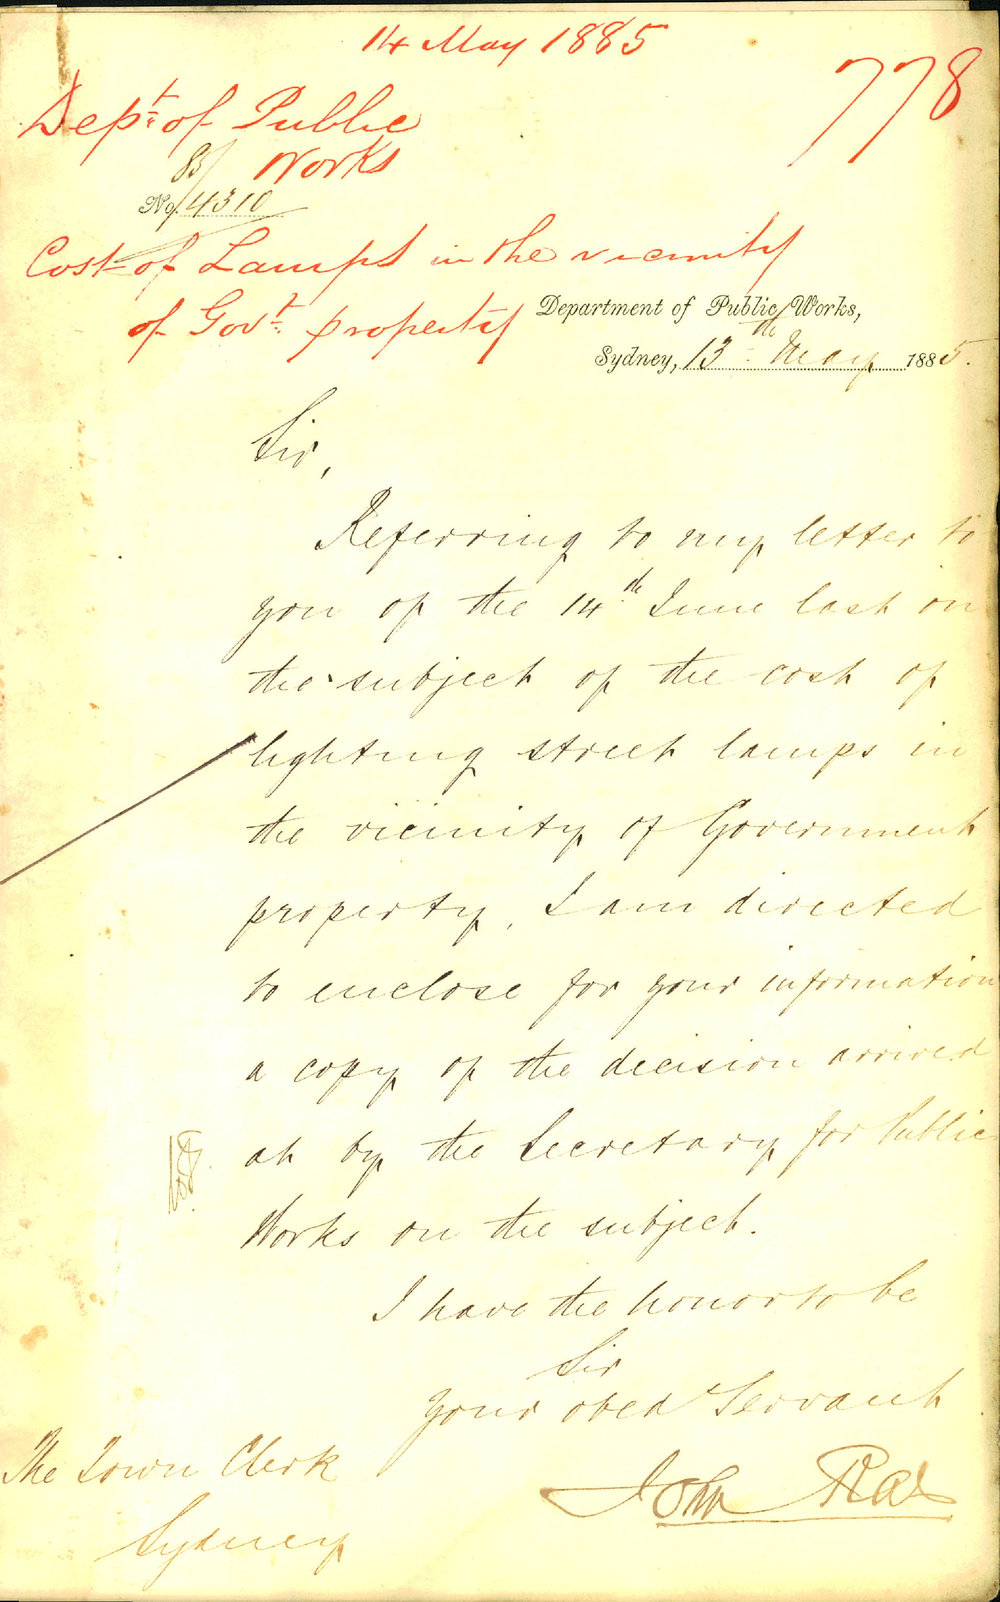 14 May 1885
778
Dept of Public
Works
85/
No. 4310
Cost of Lamps in the vicinity
of Govt property
Department of Public Works,
Sydney, 13th May 1885.
Sir,
Referring to my letter to
you of the 14th June last on
the subject of the cost of
lighting street lamps in
the vicinity of Government
property, I am directed
to enclose for your information
a copy of the decision arrived
at by the Secretary for Public
Works on the subject.
I have the honor to be
Sir
Your obed Servant
John Rae
The Town Clerk
Sydney